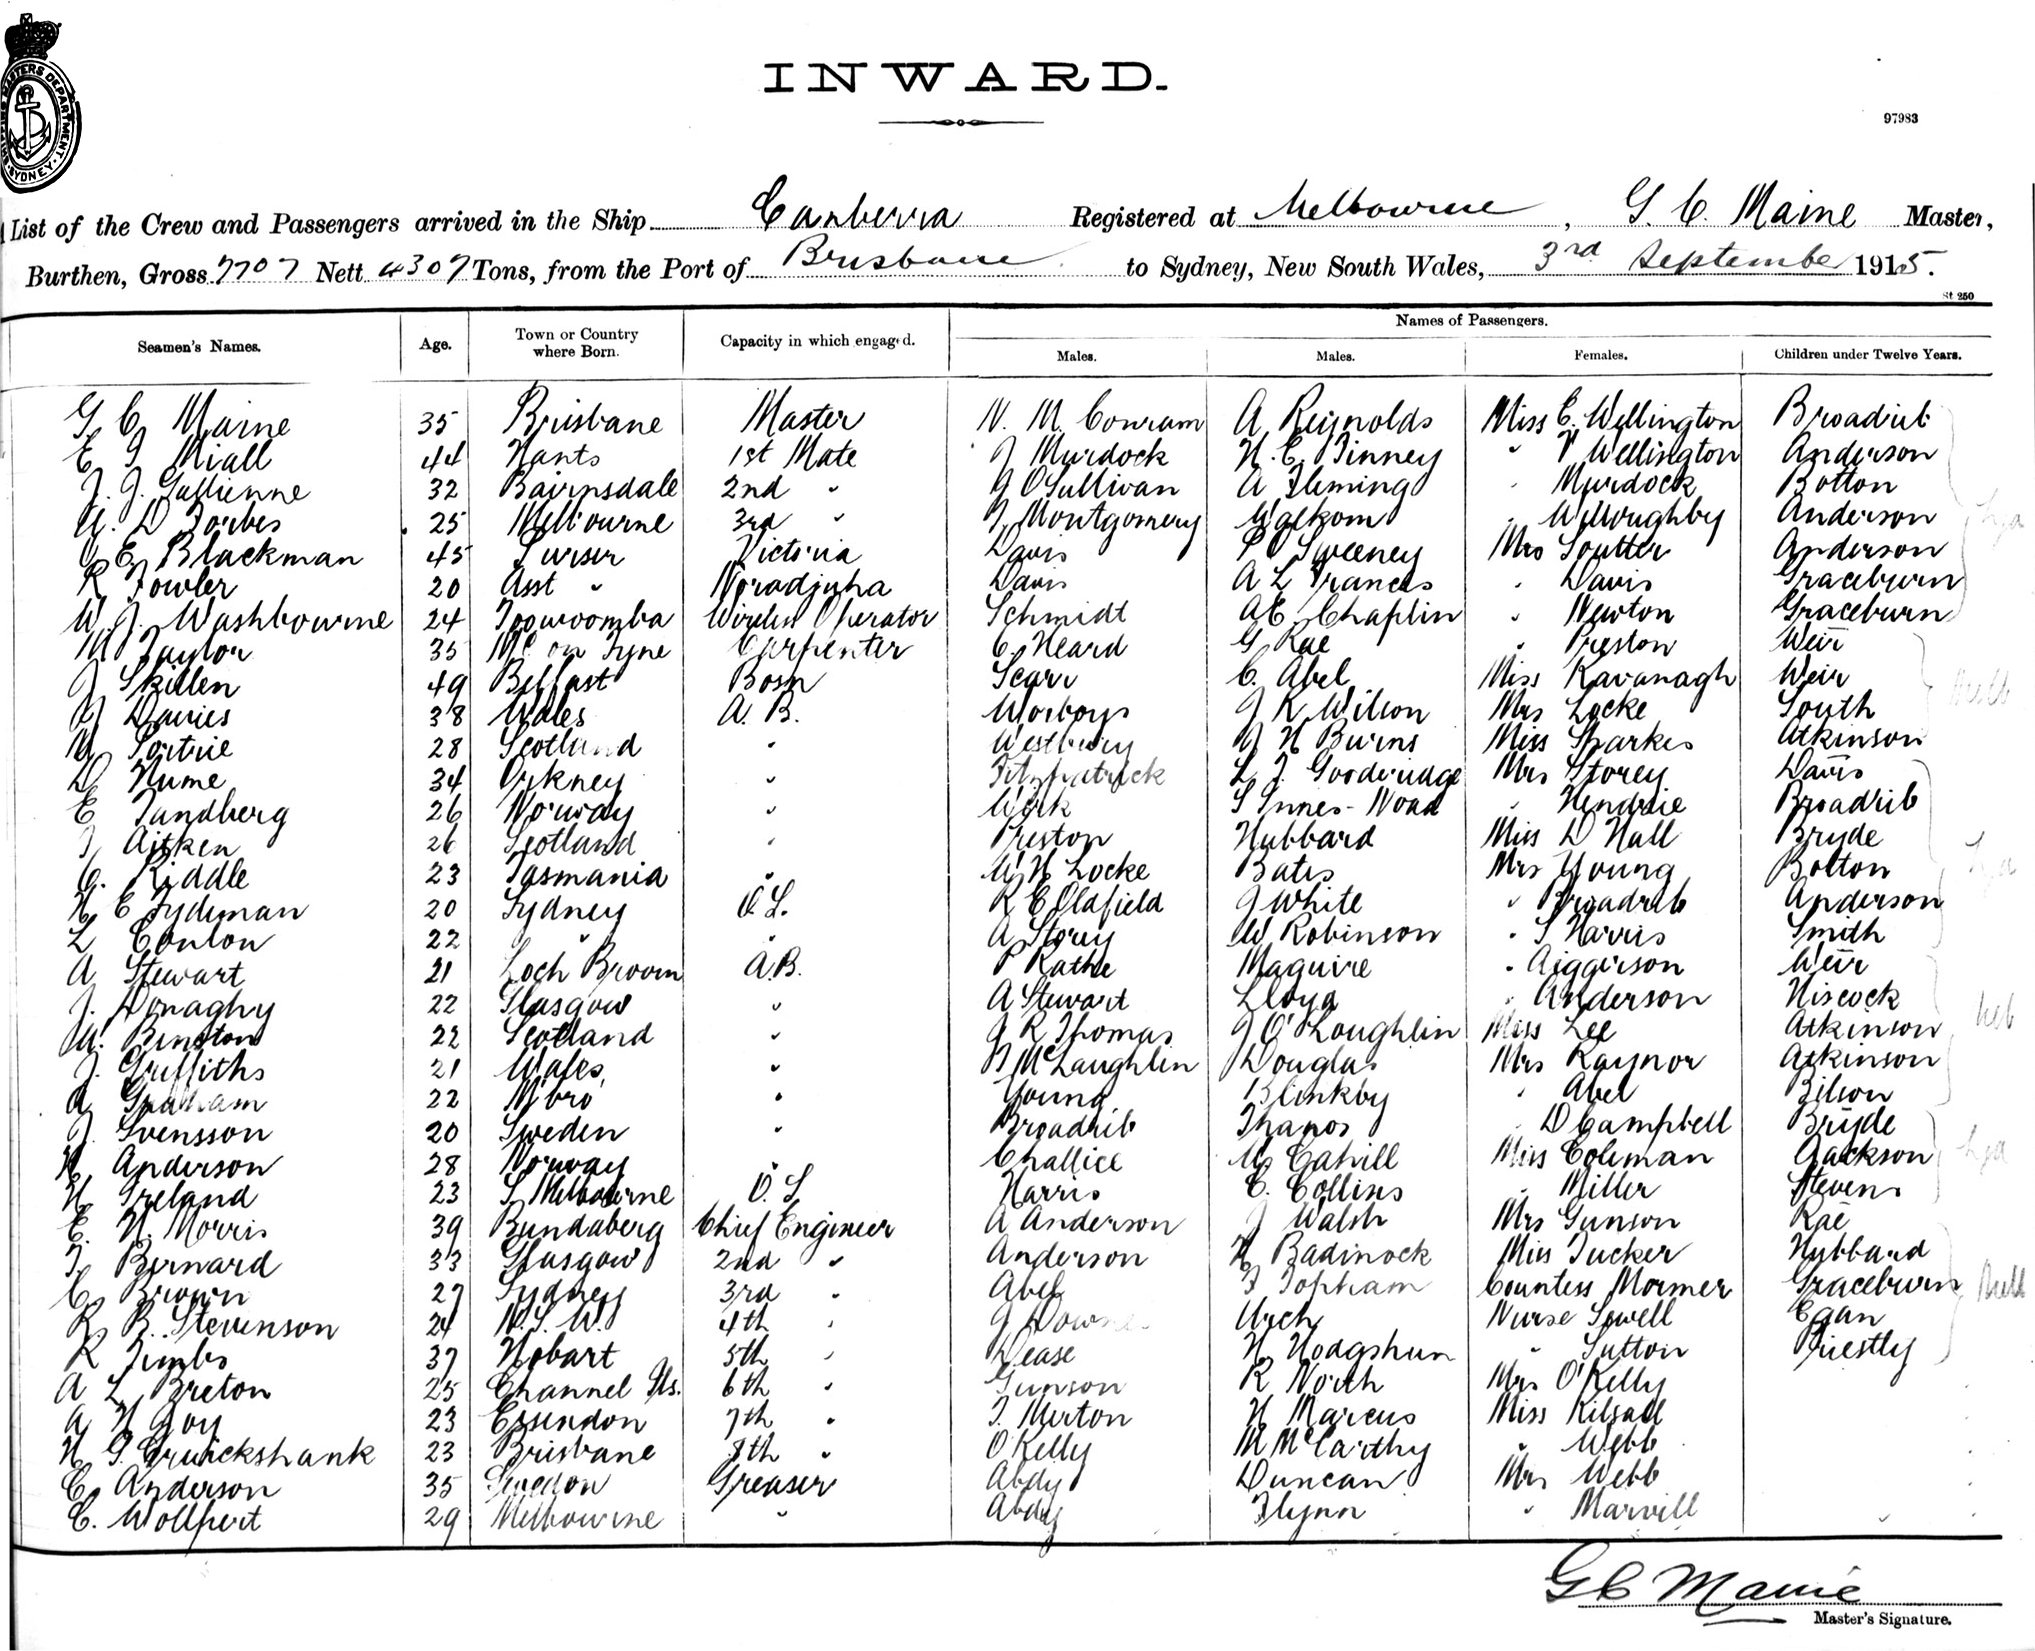 INWARD.
97983
SHIPPING MASTERS DEPARTMENT. SYDNEY.
List of the Crew and Passengers arrived in the Ship Canberra Registered at Melbourne, G. C. Maine Master,
Burthen, Gross 7707 Nett 4307 Tons, from the Port of Brisbane to Sydney, New South Wales, 3rd September 1915.
St. 250
Seamen's Names. Age. Town or Country where Born. Capacity in which engaged. Names of Passengers.
Males. Males. Females. Children under Twelve Years.
G C Maine 35 Brisbane Master N. M. Conram A Reynolds Miss E. Wellington Broadrib
E G Miall 44 Hants 1st Mate J Murdock H. E. Tinney " V Wellington Anderson
J. J. Gallienne 32 Bairnsdale 2nd " J O'Sullivan A Fleming " Murdock Botton
D Forbes 25 Melbourne 3rd " J. Montgomery Malkom " Willoughby Anderson
E Blackman 45 Purser Victoria Davis Sweeney Mrs Soutter Anderson
R Fowler 20 Asst " Noradjuha Davis A L Francis " Davis Graceburn
W. J. Washbourne 24 Toowoomba Wireless Operator Schmidt A E. Chaplin " Newton Graceburn
W Taylor 35 N'C on Tyne Carpenter C. Heard G Rae " Preston Weir
J Skillen 49 Belfast Bosn Scarr C. Abel Miss Kavanagh Weir
J Davies 38 Wales A. B. Worboys J R Wilson Mrs Locke South
W Portrie 28 Scotland " Westbury J H Burns Miss Sparkes Atkinson
D Hume 34 Orkney " Fitzpatrick L. J. Goodridge Mrs Storey Davis
E Tandberg 26 Norway " Work S Innes-Noad " Hendrie Broadrib
J Aitken 26 Scotland " Preston Hubbard Miss D Hall Bryde
C. Riddle 23 Tasmania " W H Locke Bates Mrs Young Bolton
H C Tydeman 20 Sydney O. S. R E Olafield J White " Broadrib Anderson
L Conlon 22 " " A Storey W Robinson " S Harris Smith
A Stewart 21 Loch Broom A.B. P Rathe Maguire " Aiggerson Weir
J. Donaghy 22 Glasgow " A Stewart Lloyd " Anderson Hiscock
W. Binston 22 Scotland " J R Thomas J O'Loughlin Miss Lee Atkinson
J. Griffiths 21 Wales " McLaughlin Douglas Mrs Raynor Atkinson
A Graham 22 M'bro " Young Blinkby " Abel Bilson
J. Svensson 20 Sweden " Broadrib Thanos " D Campbell Bryde
H Anderson 28 Norway " Challice W Cahill Miss Coleman Jackson
H Ireland 23 S Melbourne O. S. Harris C. Collins " Miller Stevens
E. H. Morris 39 Bundaberg Chief Engineer A Anderson J Walsh Mrs Gunson Rae
J. Bernard 33 Glasgow 2nd " Anderson H Badinock Miss Tucker Hubbard
C. Brown 27 Sydney 3rd " Abel F Topham Countess Mormer Graceburn
R R. Stevenson 24 N. S. W. 4th " J Urch Nurse Sewell Egan
R Timbs 37 Hobart 5th " Dease H Hodgshun " Sutton Priestly
A L Breton 25 Channel Ils. 6th " Gunson R North Mrs O'Kelly
A H Joy 23 Essendon 7th " J. Merton H Marcus Miss Kilsall
H G Cruickshank 23 Brisbane 8th " O'Kelly M McCarthy " Webb
C. Anderson 35 Sweden Greaser Abdy Duncan Mrs Webb
C. Wollpert 29 Melbourne " Abdy Flynn " Marvill
G C Maine
Master's Signature.